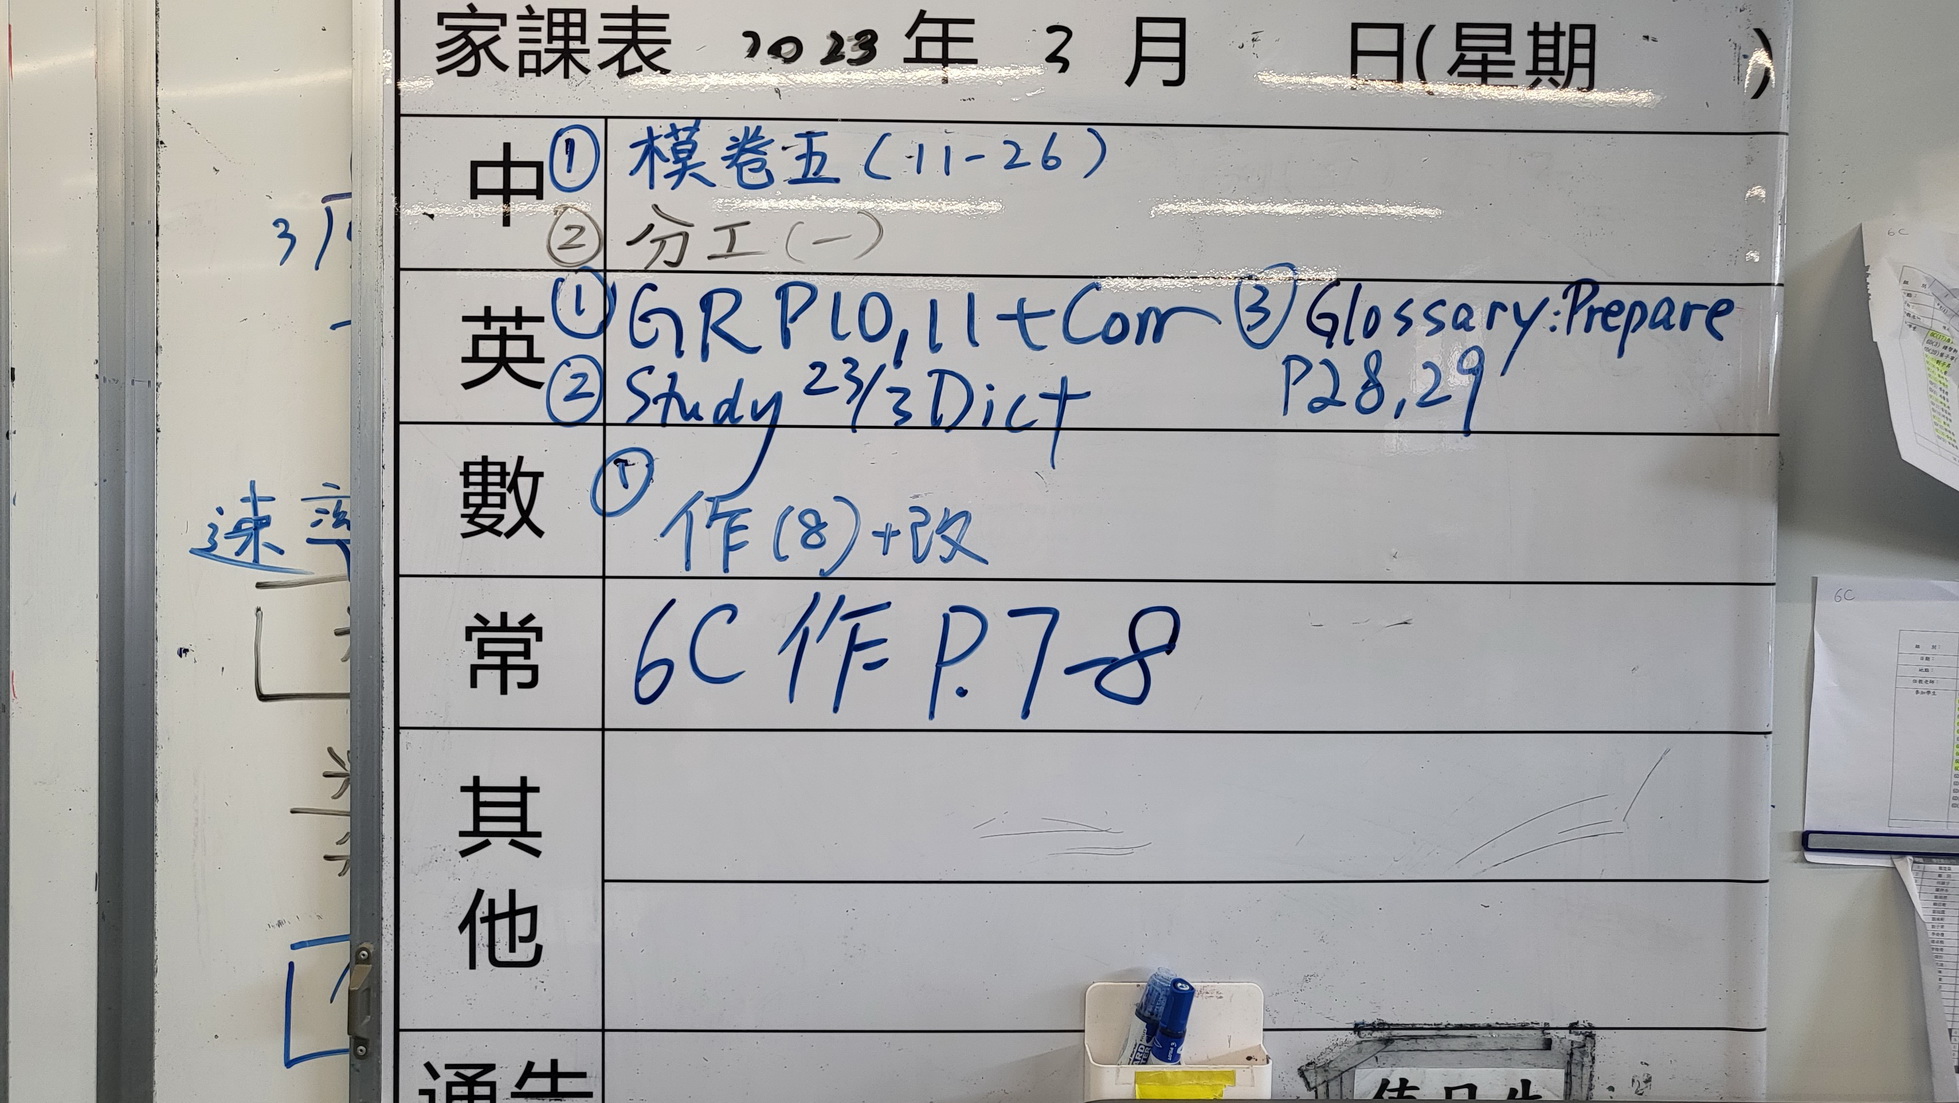 家課表 2023年 3 月 日(星期 )
中 ① 模卷五(11-26)
② 分工(一)
英 ① GR P10,11+Corr ③ Glossary:Prepare
② Study 23/3 Dict P28,29
數 ① 作(8)+改
常 6C 作 P.7-8
其他
通告
值日生
3
速率
6C
6C